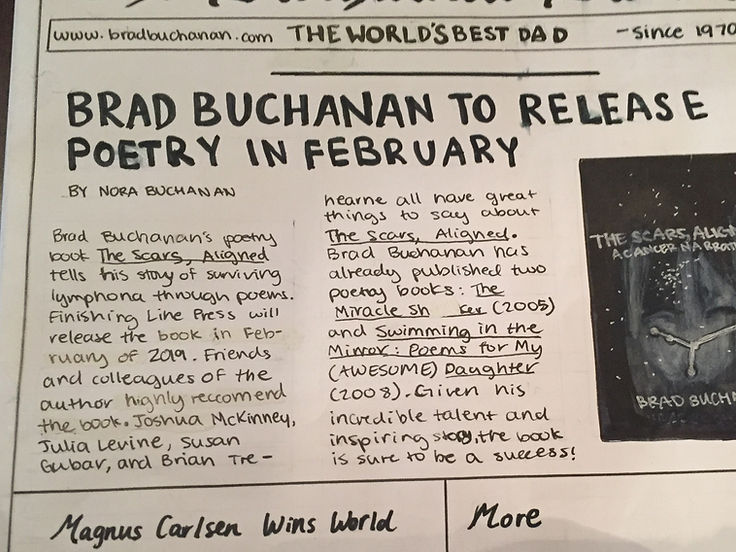 www.bradbuchanan.com THE WORLD'S BEST DAD -since 1970
BRAD BUCHANAN TO RELEASE
POETRY IN FEBRUARY
BY NORA BUCHANAN
Brad Buchanan's poetry
book The Scars, Aligned
tells his story of surviving
lymphona through poems.
Finishing Line Press will
release the book in Feb-
ruary of 2019. Friends
and colleagues of the
author highly reccomend
the book. Joshua McKinney,
Julia Levine, Susan
Gubar, and Brian Tre-
hearne all have great
things to say about
The Scars, Aligned.
Brad Buchanan has
already published two
poetry books: The
Miracle Sh ker (2005)
and Swimming in the
Mirror: Poems for My
(AWESOME) Daughter
(2008). Given his
incredible talent and
inspiring story, the book
is sure to be a success!
THE SCARS, ALIGN
A CANCER NARRATI
BRAD BUCHA
Magnus Carlsen Wins World
More